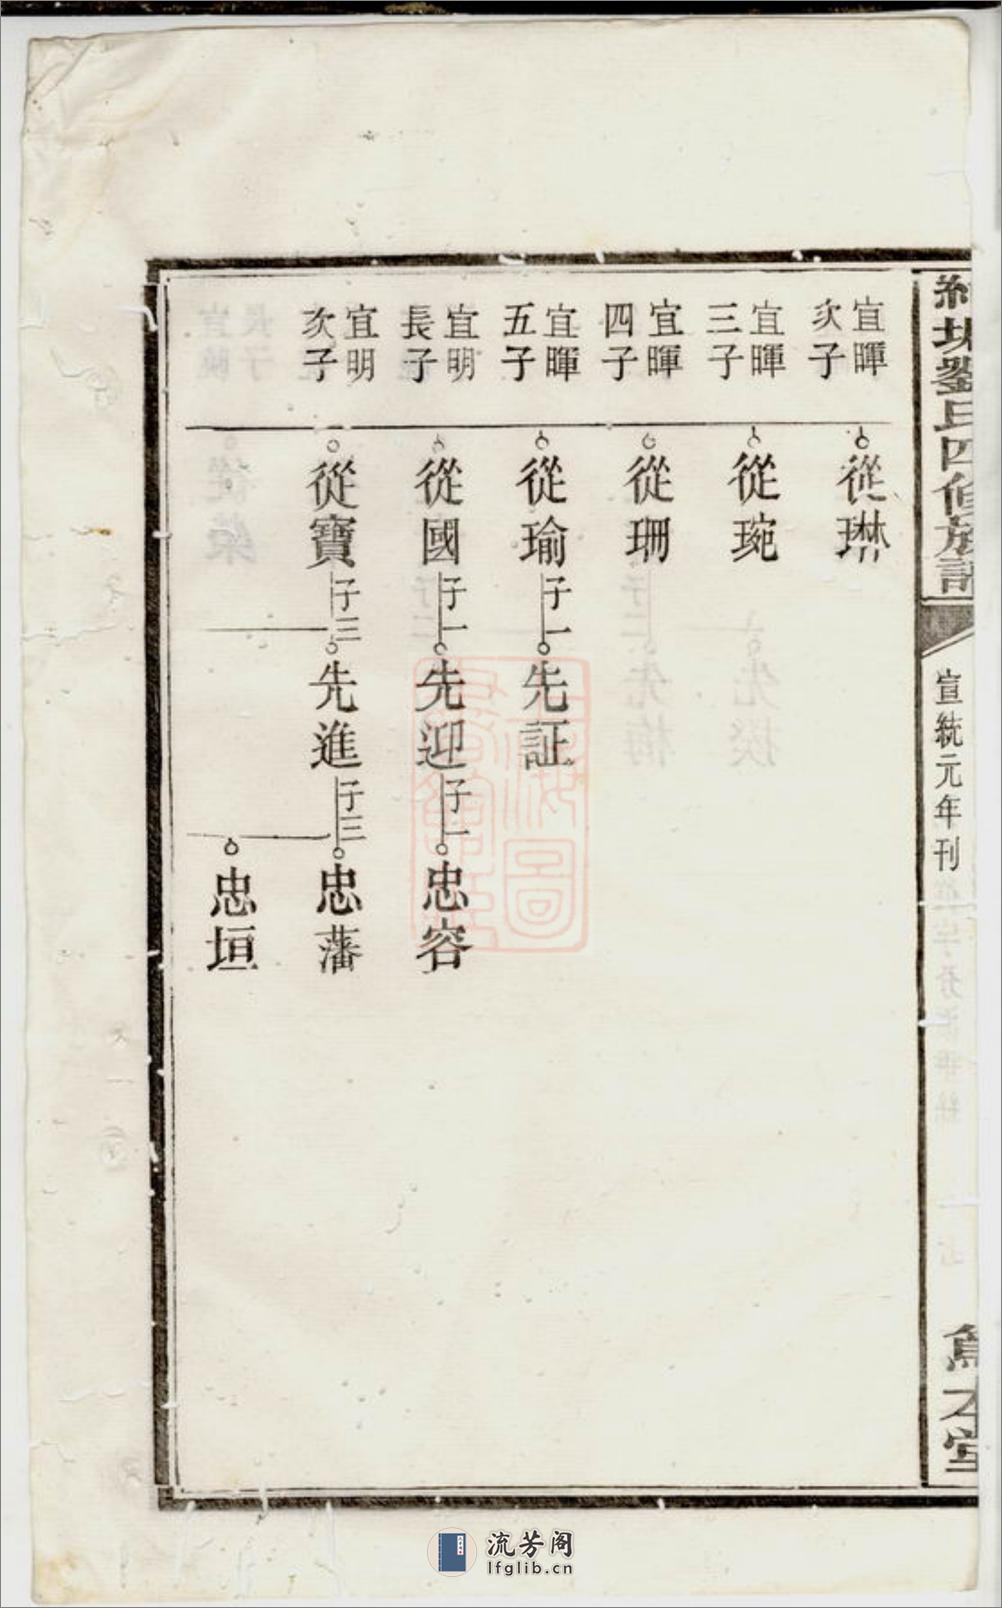 劉氏四修族譜
宣統元年刊
宜暉
次子
從琳
宜暉
三子
從琬
宜暉
四子
從珊
宜暉
五子
從瑜
子一
先証
宜明
長子
從國
子一
先迎
子一
忠容
宜明
次子
從寶
子三
先進
子三
忠藩
忠垣
流芳阁
lfglib.cn